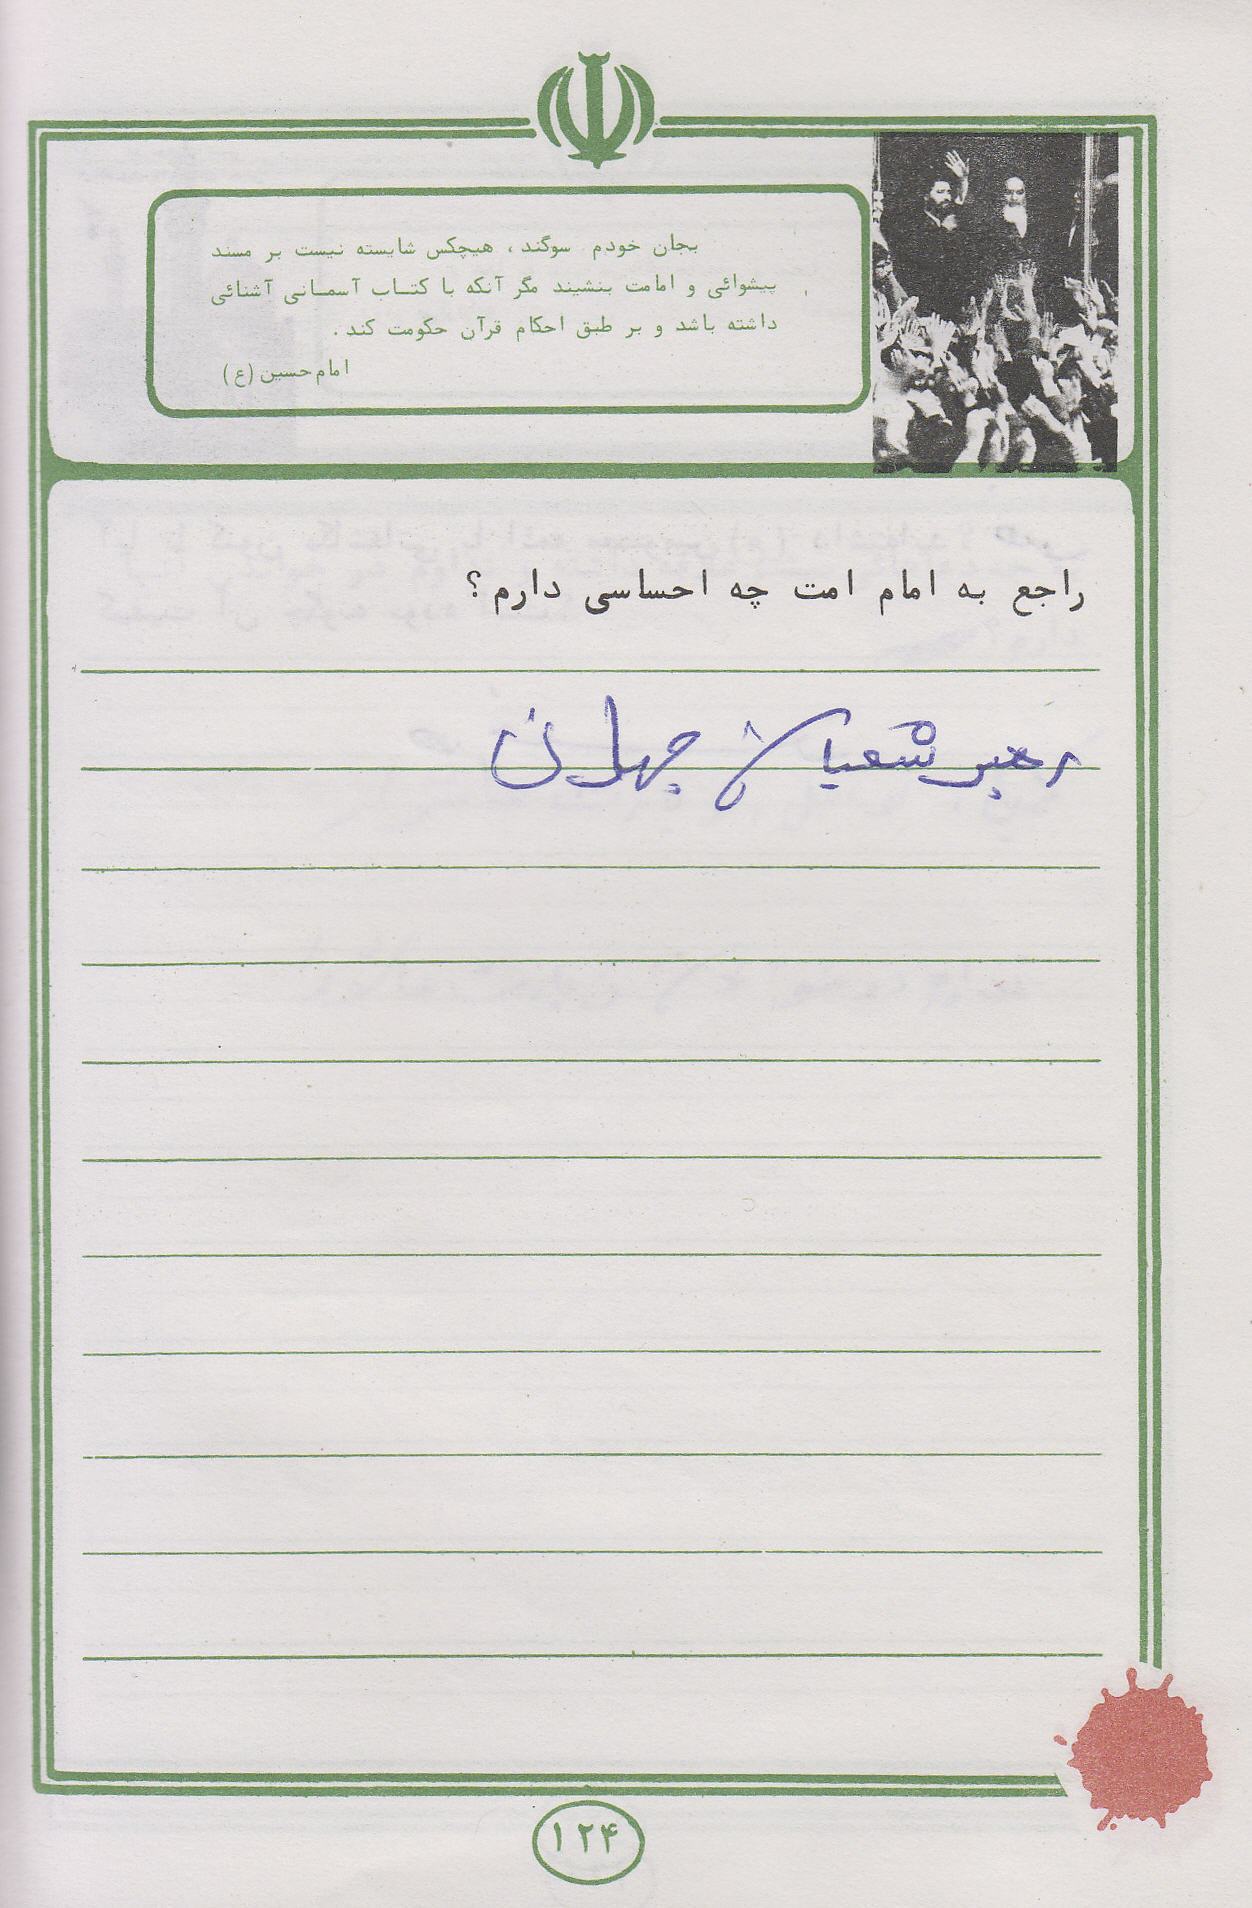 بجان خودم سوگند ، هیچکس شایسته نیست بر مسند
پیشوائی و امامت بنشیند مگر آنکه با کتاب آسمانی آشنائی
داشته باشد و بر طبق احکام قرآن حکومت کند .
امام حسین (ع)
راجع به امام امت چه احساسی دارم ؟
رهبر شعیان جهان
۱۲۴